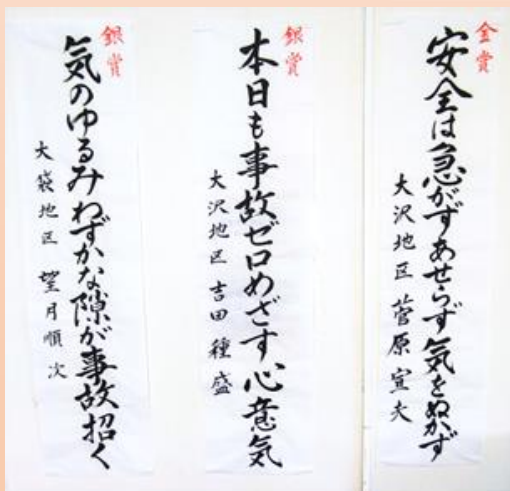 金賞
安全は急がずあせらず気をぬかず
大沢地区 菅原宣夫
銀賞
本日も事故ゼロめざす心意気
大沢地区 吉田種盛
銀賞
気のゆるみわずかな隙が事故招く
大袋地区 望月順次